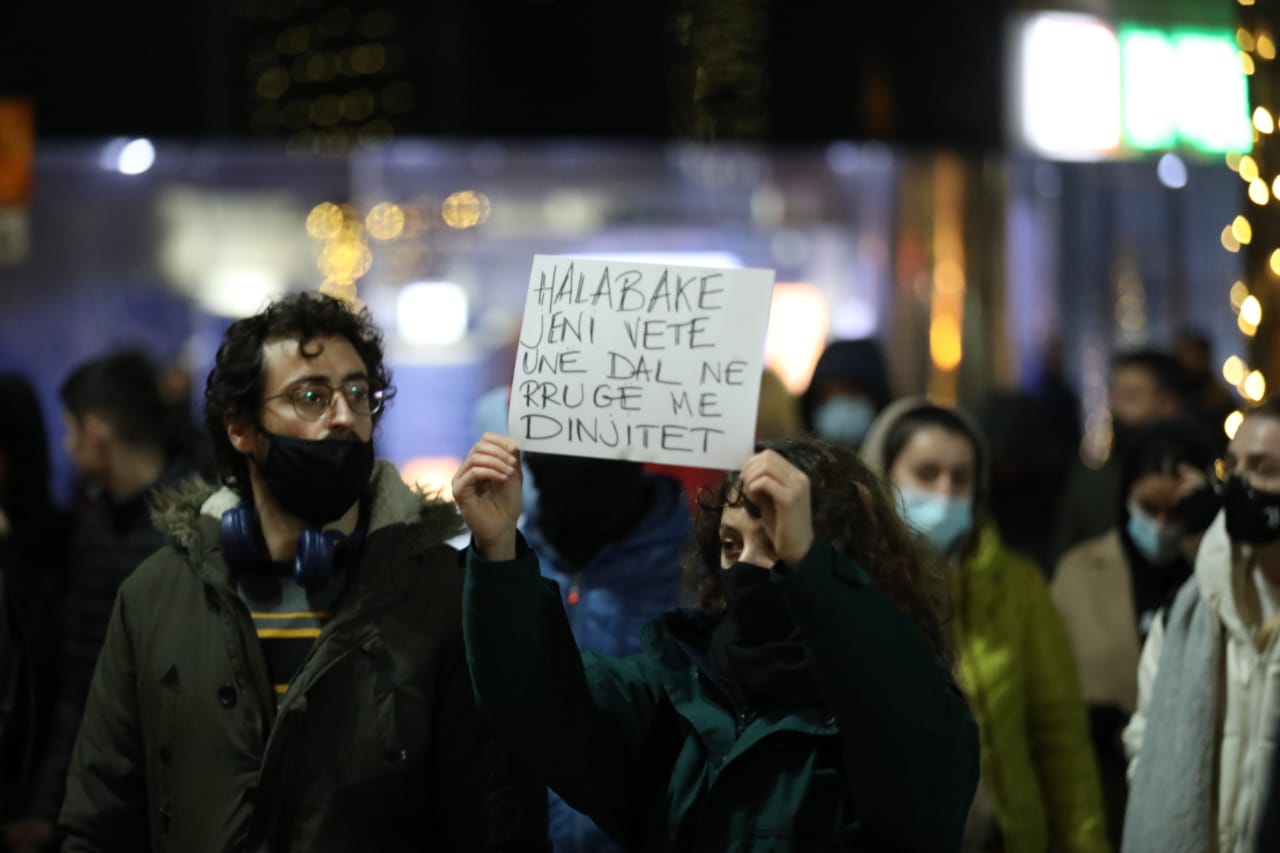 HALABAKE
JENI VETE
UNË DAL NË
RRUGË ME
DINJITET